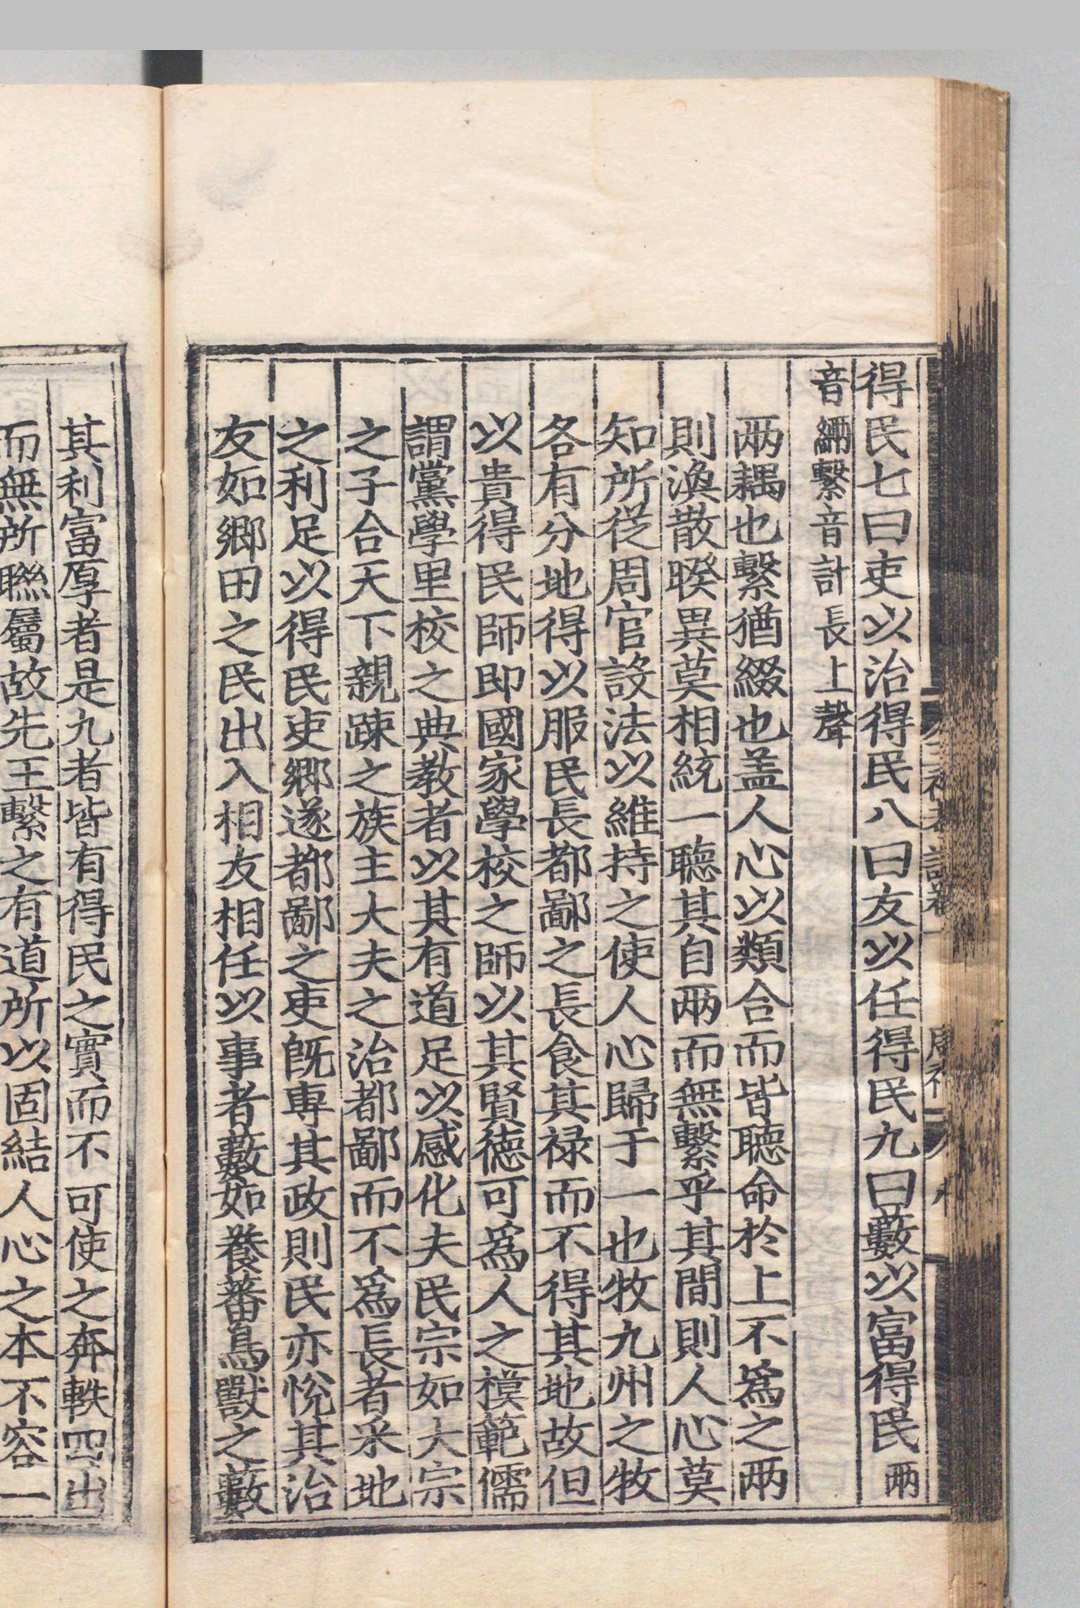 得民七曰吏以治得民八曰友以任得民九曰藪以富得民兩
音緉繫音計長上聲
兩耦也繫猶綴也盖人心以類合而皆聽命於上不爲之兩
則渙散暌異莫相統一聽其自兩而無繫乎其間則人心莫
知所從周官設法以維持之使人心歸于一也牧九州之牧
各有分地得以服民長都鄙之長食其禄而不得其地故但
以貴得民師即國家學校之師以其賢德可爲人之模範儒
謂黨學里校之典教者以其有道足以感化夫民宗如大宗
之子合天下親踈之族主大夫之治都鄙而不爲長者采地
之利足以得民吏鄉遂都鄙之吏旣專其政則民亦悅其治
友如鄉田之民出入相友相任以事者藪如養蕃鳥獸之藪
其利富厚者是九者皆有得民之實而不可使之奔軼四出
而無所聯屬故先王繫之有道所以固結人心之本不容一